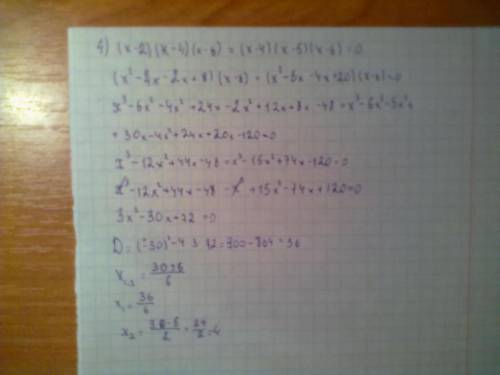 4) (x-2)(x-4)(x-6) = (x-4)(x-5)(x-6)=0
(x²-4x-2x+8)(x-6) = (x²-5x-4x+20)(x-6)=0
x³-6x²-4x²+24x-2x²+12x+8x-48=x³-6x²-5x²+
+30x-4x²+24x+20x-120=0
x³-12x²+44x-48=x³-15x²+74x-120=0
x³-12x²+44x-48-x³+15x²-74x+120=0
3x²-30x+72=0
D=(-30)²-4·3·72=900-864=36
x₁,₂=\frac{30±6}{6}
x₁=\frac{36}{6}
x₂=\frac{30-6}{2}=\frac{24}{2}=4